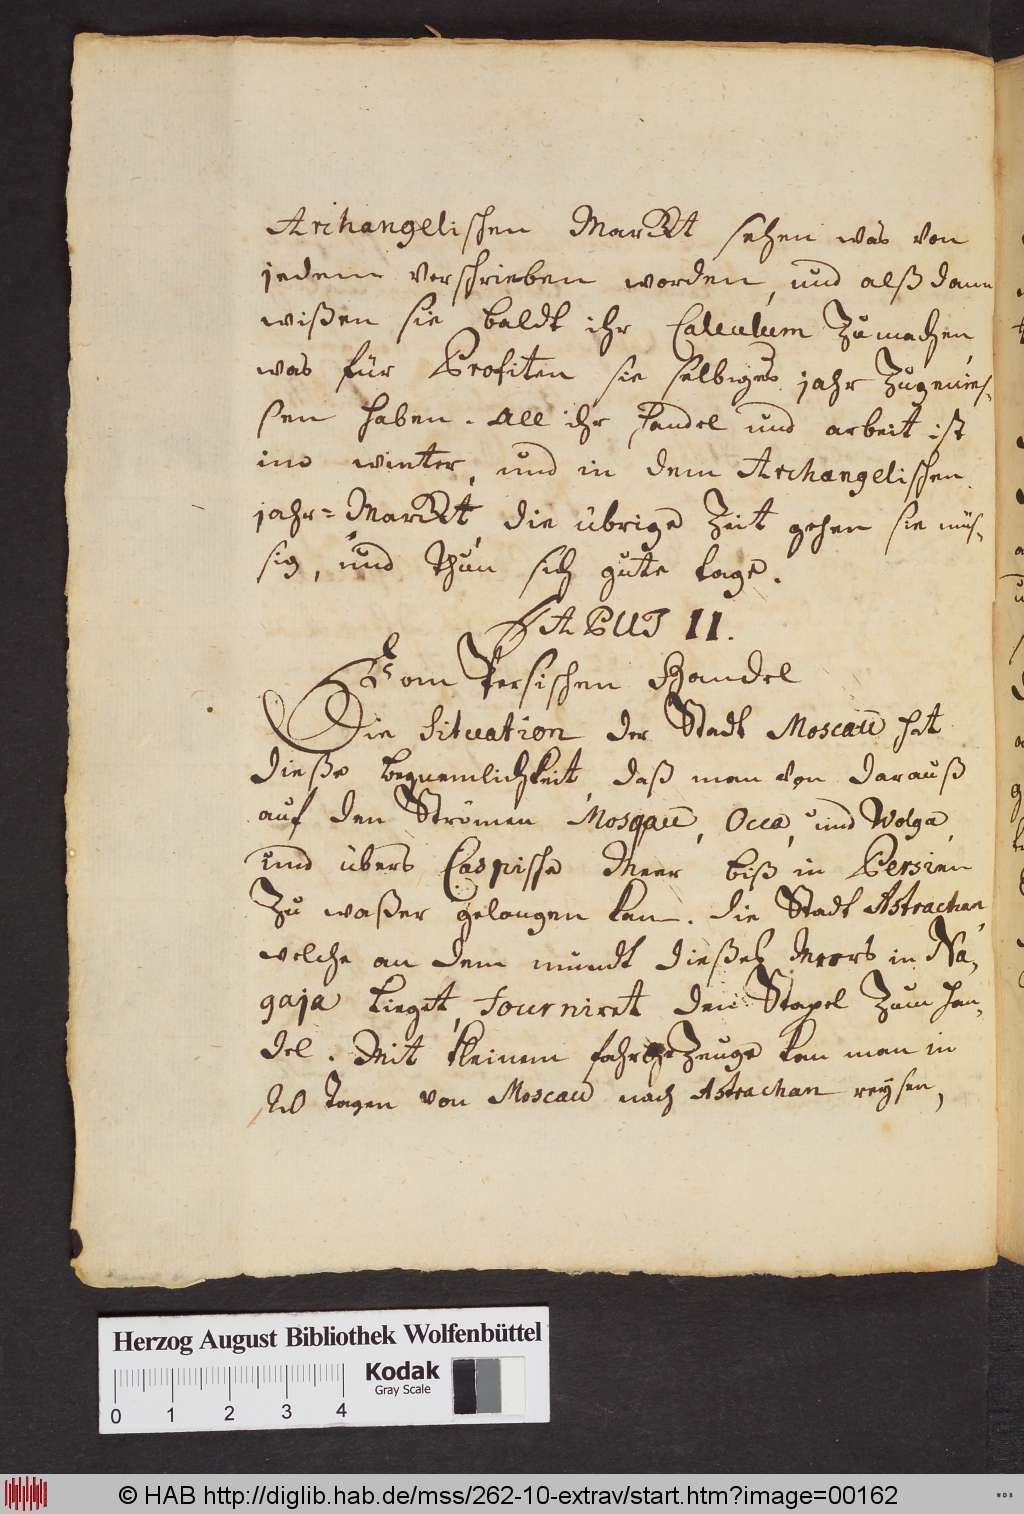 Archangelischen Marckt sehen was von
jedem verschrieben worden, und alß dann
wißen sie baldt ihr Calculum Zumachen,
was für Profiten sie selbiges jahr Zugenies-
sen haben. All ihr Handel und arbeit ist
im winter, und in dem Archangelischen
jahr=Marckt, die übrige Zeit gehen sie müs-
sig, und thun sich gute tage.
CAPUT II.
Vom Persischen Handel
Die Situation der Stadt Moscau hat
dieße bequemlichkeit, daß man von darauß
auf den Strömen Mosqau, Occa, und Wolga,
und übers Caspische Meer biß in Persien
Zu waßer gelangen kan. die Stadt Astrachan,
welche an dem mündt dießes Meers in Na-
gaja lieget, fourniret den Stapel Zum han-
del. Mit kleinem fahrZeuge kan man in
Tagen von Moscau nach Astrachan reysen,
Herzog August Bibliothek Wolfenbüttel
Kodak
Gray Scale
0 1 2 3 4
© HAB http://diglib.hab.de/mss/262-10-extrav/start.htm?image=00162